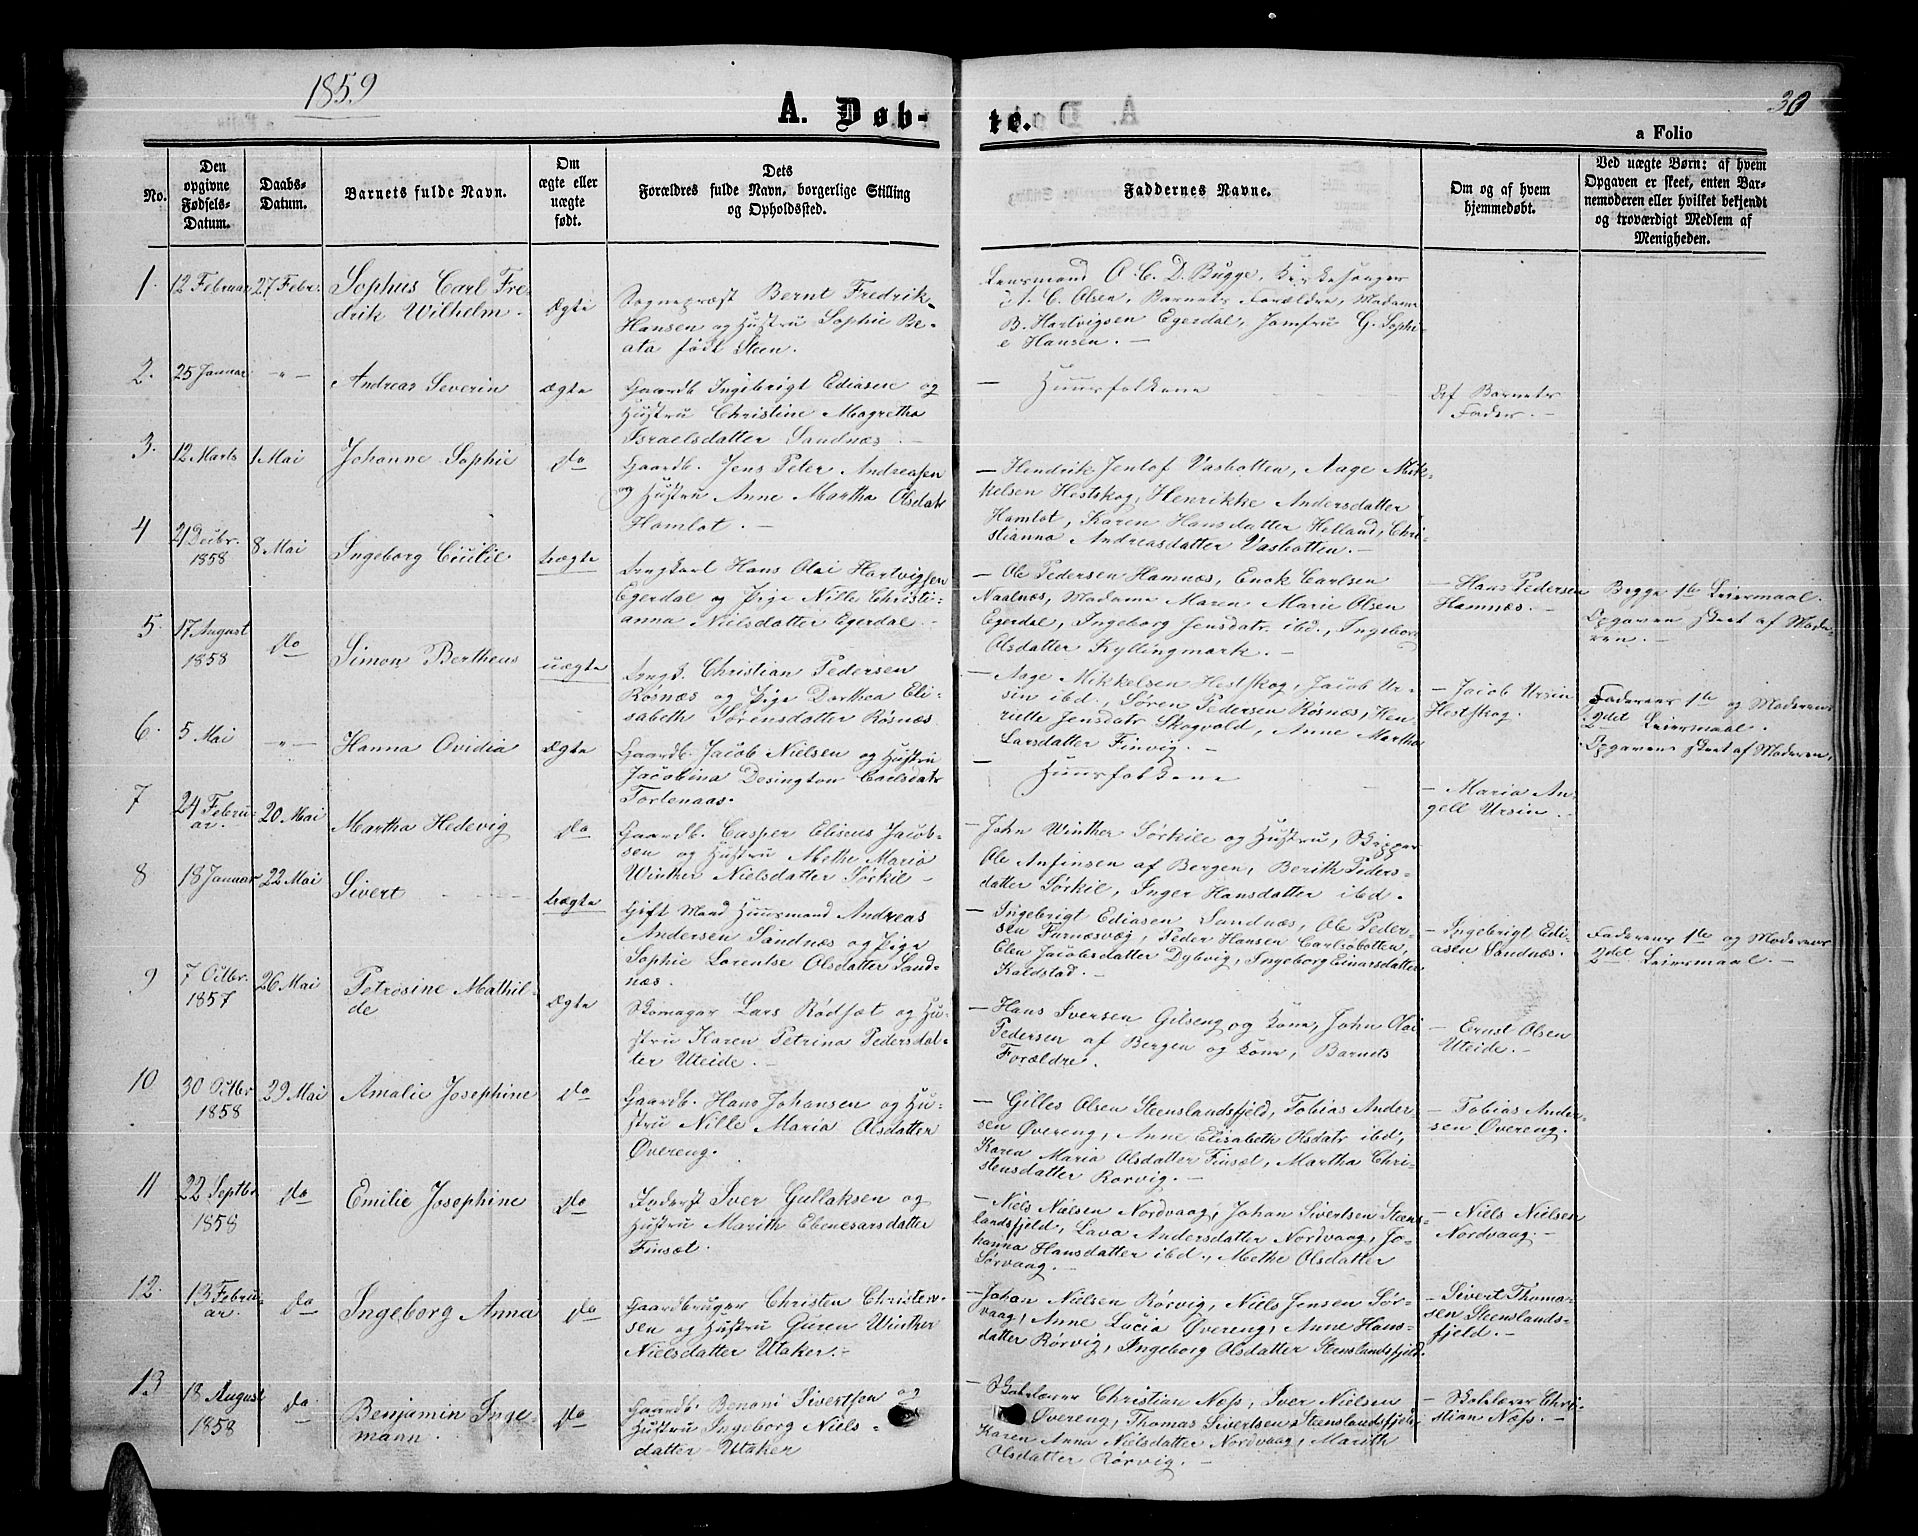 1859
A. Døb-
te.
30
a Folio
No.
Den
opgivne
Fødsels-
Datum.
Daabs-
Datum.
Barnets fulde Navn.
Om
ægte eller
uægte
født.
Dets
Forældres fulde Navn, borgerlige Stilling
og Opholdssted.
Faddernes Navne.
Om og af hvem
hjemmedøbt.
Ved uægte Børn: af hvem
Opgaven er skeet, enten Bar-
nemoderen eller hvilket bekjendt
og troværdigt Medlem af
Menigheden.
1.
12 Februar
27 Febr.
Sophus Carl Fre-
drik Wilhelm.
Ægte
Sognepræst Bernt Fredrik
Hansen og Hustru Sophie Be-
ata født Steen.
Lensmand O. C. D. Bugge, Kirkesanger
C. Olsen, Barnets Forældre, Madame
B. Hartvigsen Egerdal, Jomfru G. Sophi-
e Hansen. -
2.
25 Januar
-"-
Andreas Severin
ægte
Gaardb Ingebrigt Ediasen og
Hustru Christine Magretha
Israelsdatter Sandnæs. -
- Huusfolkene
Af Barnets
Fader. -
3.
12 Marts
1 Mai
Johanne Sophie
do
Gaardb. Jens Peter Andreasen
og Hustru Anne Martha Olsdatr
Hamlot. -
- Hendrik Jentof Vasbotten, Aage Mik-
kelsen Hestskog, Henrikke Andersdatter
Hamlot, Karen Hansdatter Helland, Chri-
stianna Andreasdatter Vasbotten. -
4
21 Decbr.
1858
8 Mai
Ingeborg Cicilie
Uægte
Ungkarl Hans Olai Hartvigsen
Egerdal og Pige Nille Christi-
anna Nielsdatter Egerdal. -
- Ole Pedersen Hamnæs, Enok Carlsen
Naalnæs, Madame Maren Marie Olsen
Egerdal, Ingeborg Jensdatr. ibd., Ingeborg
Olsdatter Kyllingmark. -
- Hans Pedersen
Hamnæs. -
Begge 1te Leiermaal.
Opgaven skeet af Mode-
ren. -
5.
17 August
1858
do
Simon Bertheus
uægte
Ungk. Christian Pedersen
Rosnæs og Pige Dorthea Eli-
sabeth Sørensdatter Røsnæs
- Aage Mikkelsen Hestskog, Jacob Ur-
sin ibd., Søren Pedersen Røsnæs, Hen-
riette Jensdatr Skogvold, Anne Martha
Larsdatter Finvig. -
- Jacob Ursin
Hestskog.
Faderens 1te og Moderens
2det Leiermaal.
Opgaven skeet af Moderen.
6.
5 Mai
-"-
Hanna Ovidia
Ægte
Gaardb. Jacob Nielsen og Hustru
Jacobina Desington Carlsdatr
Tortenaas.
- Huusfolkene
- Maria An-
gell Ursin. -
7
24 Febru-
ar.
20 Mai
Martha Hedevig
do
Gaardb. Casper Eliseus Jacob-
sen og Hustru Methe Maria
Winther Nielsdatter Sørkil -
- John Winther Sørkile og Hustru, Skipper
Ole Anfinsen af Bergen, Berith Peders-
datter Sørkil, Inger Hansdatter ibd.
8
18 Januar
22 Mai
Sivert
Uægte
Gift Mand Huusmand Andreas
Andersen Sandnæs og Pige
Sophie Lorentse Olsdatter Sand-
næs.
- Ingebrigt Ediasen Sandnæs, Ole Peder-
sen Furnæsvæg, Peder Hansen Carlsbotten,
Elen Jacobsdatter Dybvig, Ingeborg Einarsdatter
Kaldstad. -
- Ingebrigt Edi-
asen Sandnæs. -
Faderens 1te og Moderens
2det Leiermaal. -
9
7 Octbr.
1857
26 Mai
Petrosine Mathil-
de
Ægte
Skomager Lars Rødsæt og Hu-
stru Karen Petrina Pedersdat-
ter Uteide. -
- Hans Iversen Gilseng og Kone, John Olai
Pedersen af Bergen og Kone, Barnets
Forældre.
- Ernst Olsen
Uteide. -
10
30 Octbr
1858
29 Mai
Amalie Josephine
do
Gaardb. Hans Johansen og Hu-
stru Nille Maria Olsdatter
Øvereng.
- Gilles Olsen Steenslandsfjeld, Tobias Ander-
sen Øvereng, Anne Elisabeth Olsdatr ibd,
Karen Maria Olsdatter Finsæt, Martha Chri-
stensdatter Rorvig. -
- Tobias Ander-
sen Øvereng. -
11
22 Septbr
1858
do
Emilie Josephine
do
Inderst Iver Gullaksen og
Hustru Marith Ebenesarsdatter
Finsæt.
- Niels Nielsen Nordvaag, Johan Sivertsen Steens-
landsfjeld, Lava Andersdatter Nordvaag, Jo-
hanna Hansdatter ibd., Methe Olsdatter
Sørvaag. -
- Niels Nielsen
Nordvaag. -
12.
13 Febru-
ar.
do
Ingeborg Anna
do
Gaardbruger Christen Christen-
sen og Hustru Guren Winther
Nielsdatter Utaker. -
- Johan Nielsen Rørvig, Niels Jensen Sør-
vaag, Anne Lucia Øvereng, Anne Hans-
datter Rørvig, Ingeborg Olsdatter Steenslandsfjeld.
- Sivert Thoma-
sen Steenslands-
fjeld. -
13
18 August
1858
do
Benjamin Inge-
mann.
do
Gaardb. Benoni Sivertsen og
Hustru Ingeborg Niels-
datter Utaker
- Skolelærer Christian Næss, Iver Nielsen
Øvereng, Thomas Sivertsen Steenslandsfjeld
Karen Anna Nielsdatter Nordvaag, Marith
Olsdatter Rørvig. -
- Skolelærer Chri-
stian Næss. -